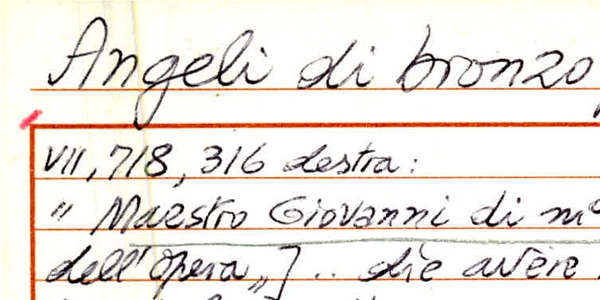 Angeli di bronzo,
VII, 718, 316 destra:
" Maestro Giovanni di mº
dell'opera„] .. die avere